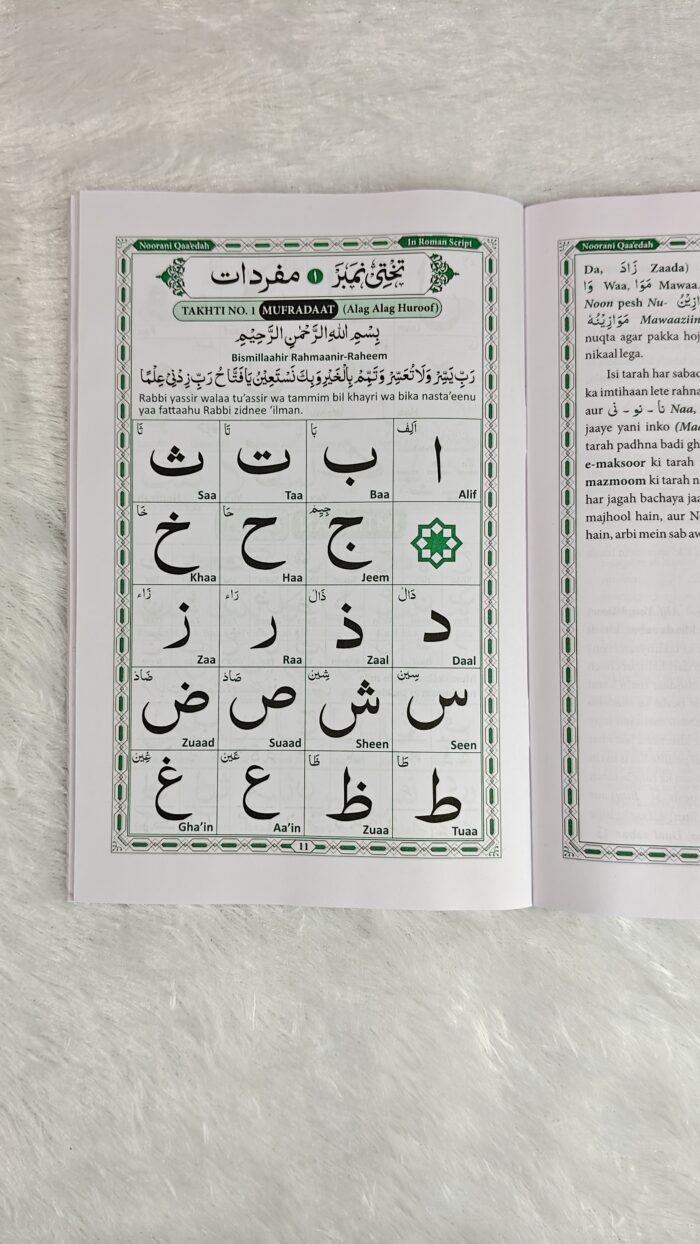 Noorani Qaa'edah
In Roman Script
تختی نمبر ۱ مفردات
TAKHTI NO. 1 MUFRADAAT (Alag Alag Huroof)
بِسْمِ اللهِ الرَّحْمٰنِ الرَّحِيْمِ
Bismillaahir Rahmaanir-Raheem
رَبِّ يَسِّرْ وَلَا تُعَسِّرْ وَتَمِّمْ بِالْخَيْرِ وَبِكَ نَسْتَعِيْنُ يَا فَتَّاحُ رَبِّ زِدْنِيْ عِلْمًا
Rabbi yassir walaa tu'assir wa tammim bil khayri wa bika nasta'eenu
yaa fattaahu Rabbi zidnee 'ilman.
اَلِف بَا تَا ثَا
ا ب ت ث
Alif Baa Taa Saa
جِيْم حَا خَا
ج ح خ
Jeem Haa Khaa
دَالْ ذَالْ رَاء زَاء
د ذ ر ز
Daal Zaal Raa Zaa
سِين شِين صَادْ ضَادْ
س ش ص ض
Seen Sheen Suaad Zuaad
طَا ظَا عَين غَين
ط ظ ع غ
Tuaa Zuaa Aa'in Gha'in
11
Noorani Qaa'edah
Da, زَادَ Zaada)
وَا Waa, مَوَا Mawaa.
Noon pesh Nu-
مَوَازِيْنُهٗ Mawaaziin
nuqta agar pakka hoj
nikaal lega.
Isi tarah har sabac
ka imtihaan lete rahna
aur نَا - نُو - نِى Naa,
jaaye yani inko (Mad
tarah padhna badi gh
e-maksoor ki tarah
mazmoom ki tarah n
har jagah bachaya jaa
majhool hain, aur N
hain, arbi mein sab aw